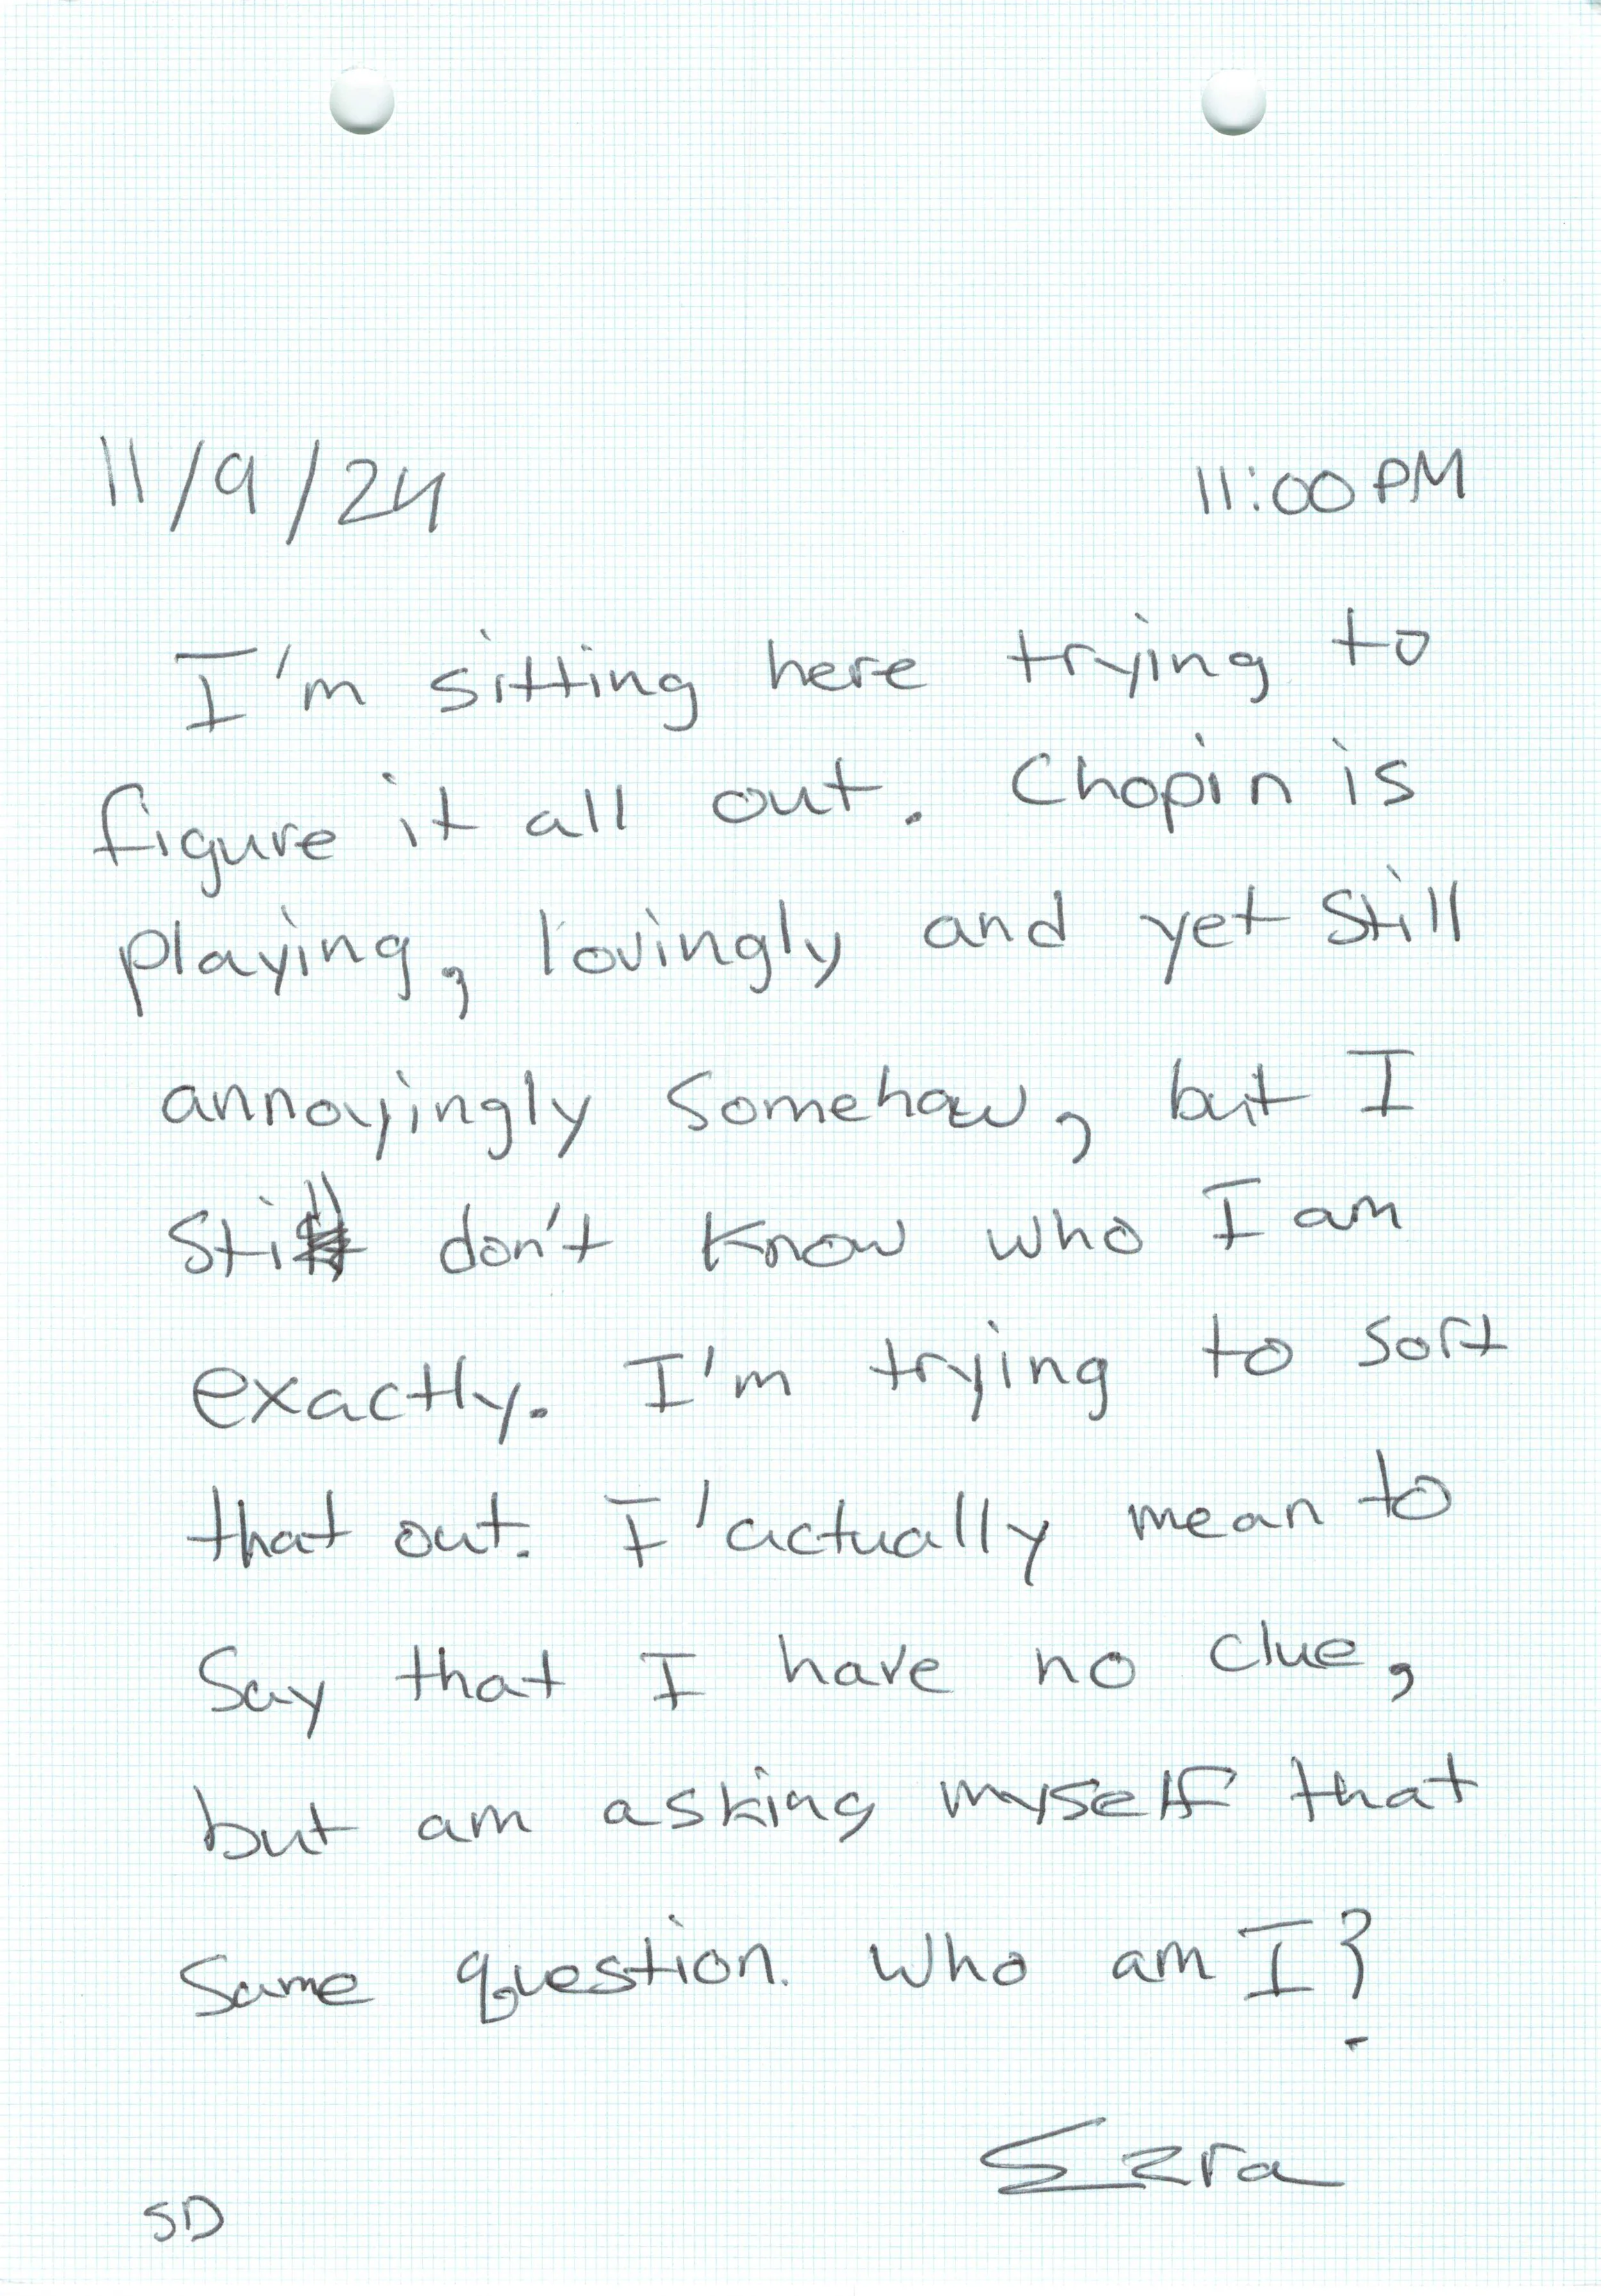 11/9/24 11:00 PM
I'm sitting here trying to
figure it all out. Chopin is
playing, lovingly and yet still
annoyingly somehow, but I
still don't know who I am
exactly. I'm trying to sort
that out. I'actually mean to
say that I have no clue,
but am asking myself that
same question. Who am I?
Ezra
SD